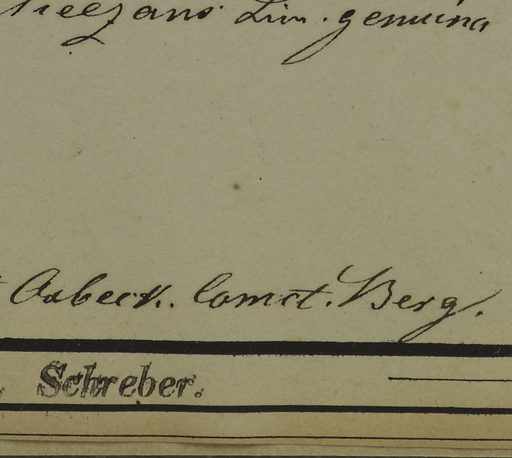 elegans Lin. genuina
Osbeck. Comct. Berg.
Schreber.